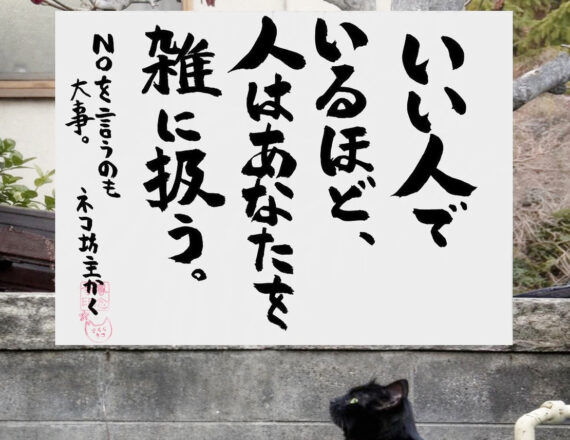 いい人で
いるほど、
人はあなたを
雑に扱う。
Noを言うのも
大事。
ネコ坊主かく